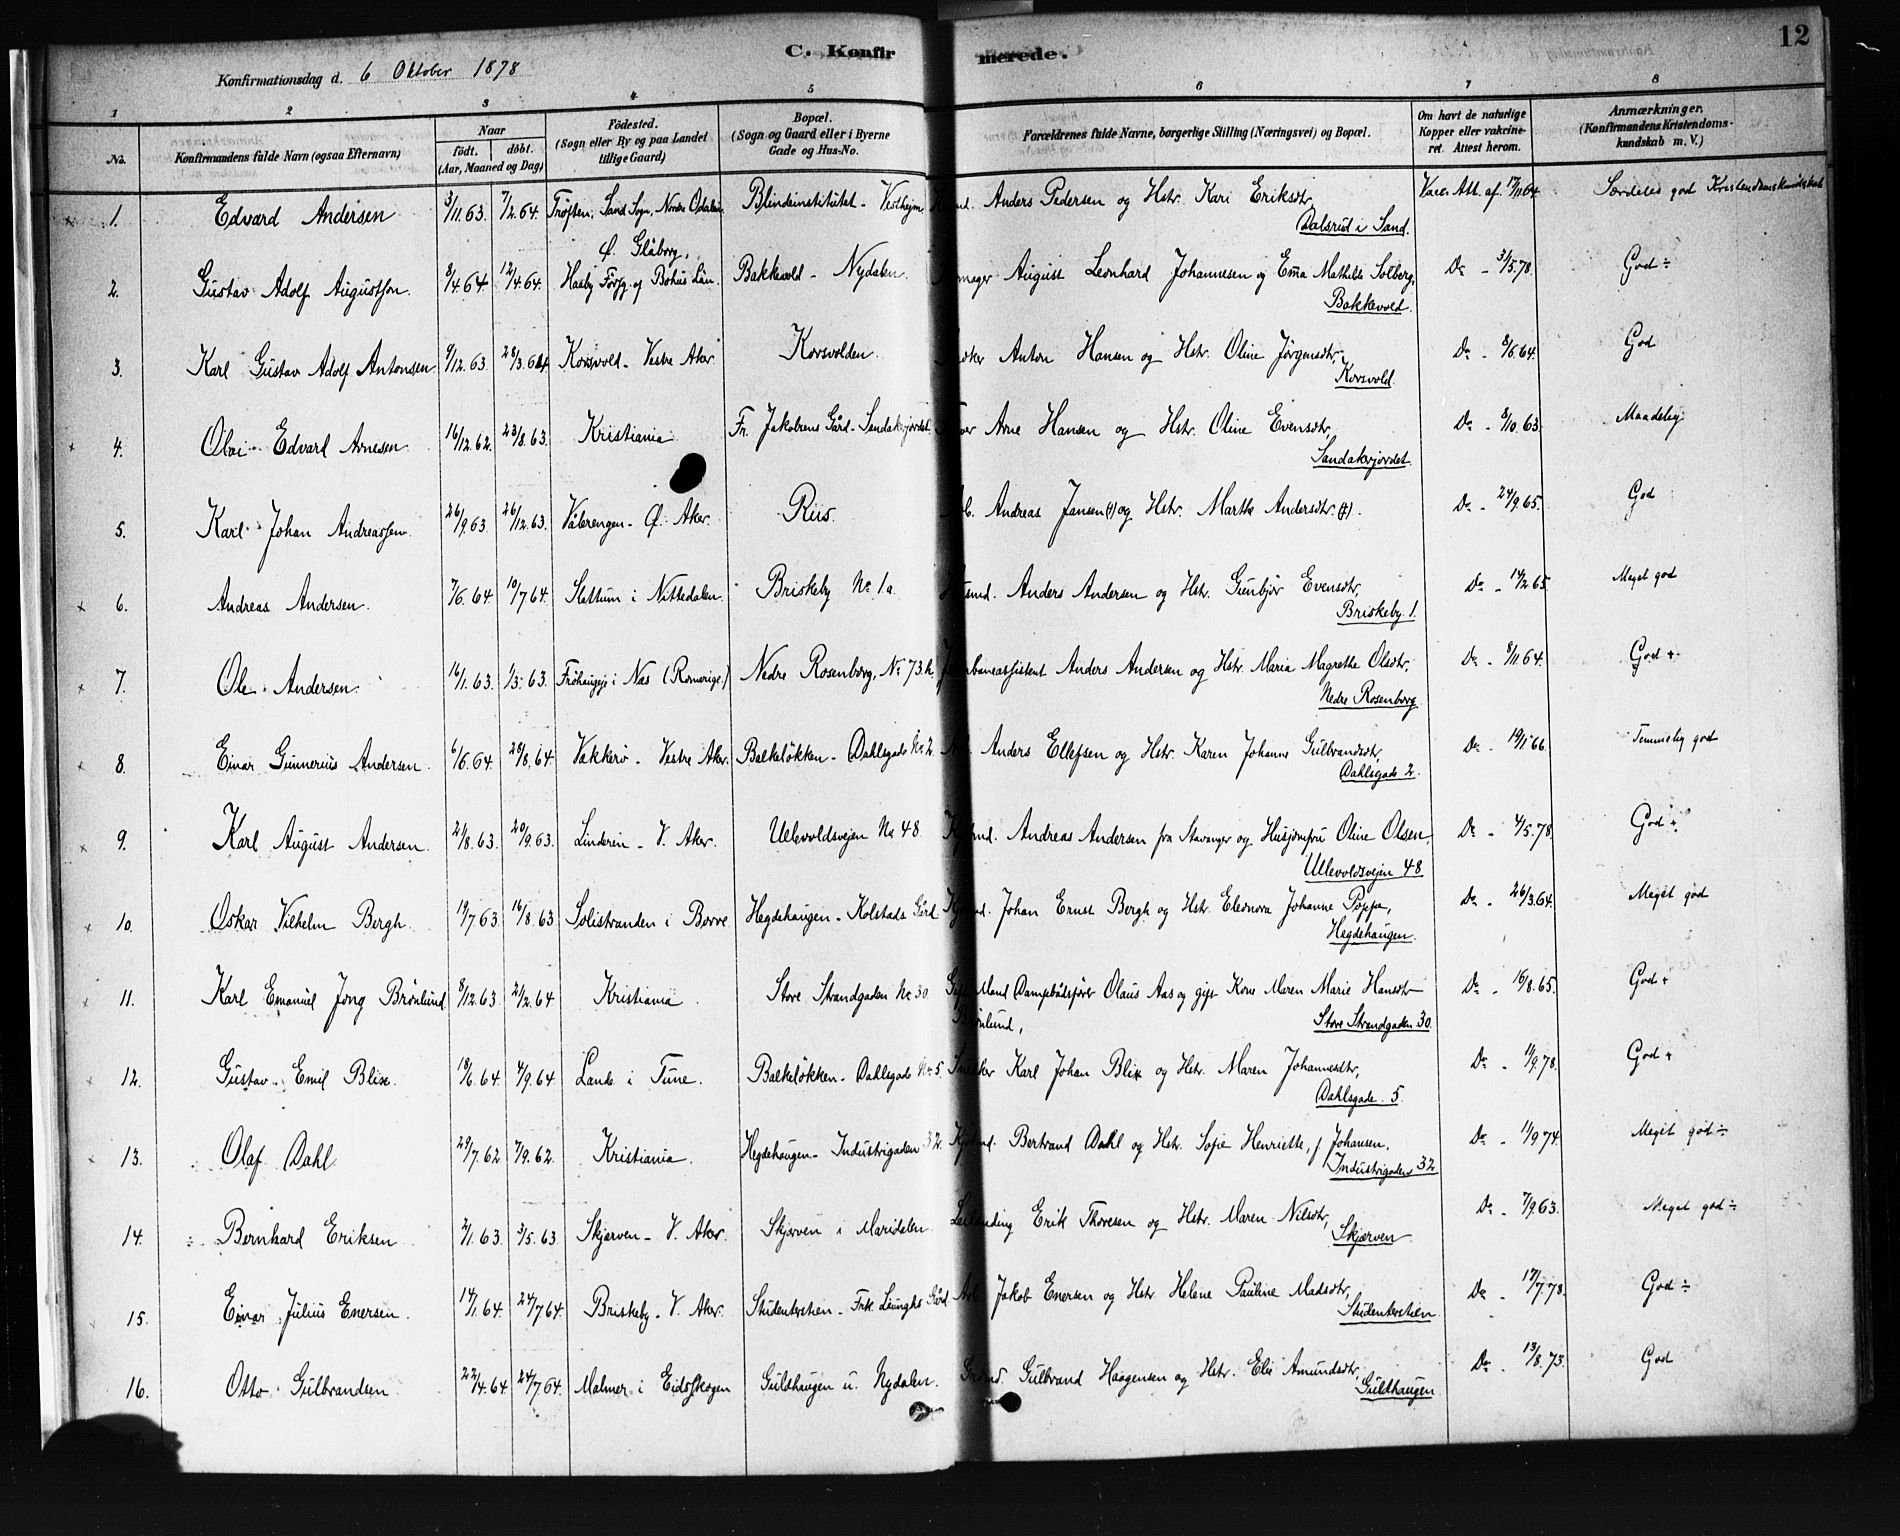 12
C. Konfirmerede.
Konfirmationsdag d. 6 Oktober 1878
1 2 3 4 5 6 7 8
No. Konfirmandens fulde Navn (ogsaa Efternavn) Naar födt. döbt. (Aar, Maaned og Dag) Födested. (Sogn eller By og paa Landet tillige Gaard) Bopæl. (Sogn og Gaard eller i Byerne Gade og Hus-No. Forældrenes fulde Navne, borgerlige Stilling (Næringsvei) og Bopæl. Om havt de naturlige Kopper eller vakcineret. Attest herom. Anmærkninger. (Konfirmandens Kristendomskundskab m. V.)
1. Edvard Andersen 3/11.63. 7/2.64. Trøften, Sand Sogn, Nordre Odalen Blindeinstitutet - Vestheim Anders Pedersen og Hstr. Kari Eriksdtr, Vacc. Att. af 17/11 64. Særdeles god Kristendomskundskab
Dalsrud i Sand.
2. Gustav Adolf Augustson 8/4.64 12/4.64. Ø. Glåborg, Haaby Forsg. af Bohus Län. Bakkevold - Nydalen. August Leonhard Johannesen og Ema Mathilde Solberg, Do - 3/5.78. God ÷
Bakkevold.
3. Karl Gustav Adolf Antonsen 9/12.63. 28/3.64 Korsvold - Vestre Aker. Korsvolden. Anton Hansen og Hstr. Oline Jörgensdtr, Do - 8/6.64. God
Korsvold.
4. Olai Edvard Arnesen 16/12.62. 23/8.63. Kristiania Fr. Jakobsens Gård - Sandakerjordet Arne Hansen og Hstr. Oline Evensdtr, Do - 8/10.63. Maadelig
Sandakerjordet.
5. Karl Johan Andreassen 26/9.63 26/12.63. Vålerengen - Ø. Aker. Riis. Andreas Jansen (†) og Hstr. Marthe Andersdtr. (†). Do - 24/9.65. God
6. Andreas Andersen. 7/6.64. 10/7.64. Slattum i Nittedalen. Briskeby No 1a. Anders Andersen og Hstr. Gunbjör Evensdtr, Do - 14/2.65. Meget god
Briskeby 1.
7. Ole Andersen. 16/1.63. 1/3.63. Fröhaugeje i Nas (Romerige.) Nedre Rosenborg, No 73.k. Jernbaneassistent Anders Andersen og Hstr. Maria Magrethe Olsdtr, Do - 8/11 64. God +
Nedre Rosenborg
8. Einar Gunnerius Andersen. 6/6.64. 28/8.64 Vækkerö - Vestre Aker. Balkeløkken - Dahlsgade No 2. Anders Ellefsen og Hstr. Karen Johanne Gulbrandsdtr, Do - 19/1 66. Temmelig god
Dahlsgade 2.
9. Karl August Andersen. 21/8.63. 20/9.63. Linderin - V. Aker. Ullevoldsvejen No 48. Andreas Andersen fra Stavanger og Husjomfru Oline Olsen, Do - 4/5.78. God +
Ullevoldsvejen 48
10. Oskar Vilhelm Bergh. 19/7.63. 16/8.63 Solistranden i Borre. Hegdehaugen - Kolstads Gård Johan Ernst Bergh og Hstr. Eleonora Johanne Poppe, Do - 26/3.64. Meget god
Hegdehaugen.
11. Karl Emanuel Jong Brönlund 8/12.63. 2/2.64 Kristiania. Store Strandgaden No 30. Gift Mand Dampbådsfører Olaus Aas og gift Kone Maren Marie Hansdtr Do - 16/8.65. God +
Brönlund, Store Strandgaden 30.
12. Gustav Emil Blix. 18/6.64. 4/9.64 Lande i Tune. Balkeløkken - Dahlsgade No 5. Snedker Karl Johan Blix og Hstr. Maren Johannesdtr, Do - 11/9.78. God +
Dahlsgade 5.
13. Olaf Dahl. 29/7.62. 7/9.62. Kristiania. Hegdehaugen - Industrigaden 32. Bertrand Dahl og Hstr. Sofie Henriette, f Johansen. Do - 11/9.74. Meget god ÷
Industrigaden 32
14. Bernhard Eriksen 2/1.63. 3/5.63. Skjærven - V. Aker. Skjærven i Maridalen. Leilending Erik Thoresen og Hstr. Maren Nilsdtr, Do - 7/9.63. Meget god ÷
Skjærven
15. Einar Julius Enersen. 14/1.64. 24/7.64. Briskeby - V. Aker. Studenterstien - Frk. Ljunghs Gård Arb. Jakob Enersen og Hstr. Helene Pauline Madsdtr, Do - 17/7.78. God ÷
Studenterstien
16. Otto Gulbrandsen. 22/4.64. 24/7.64. Malmer i Eidsskogen Guldhaugen u. Nydalen. Gulbrand Haagensen og Hstr. Eli Amundsdtr, Do - 13/8.73. God
Guldhaugen.